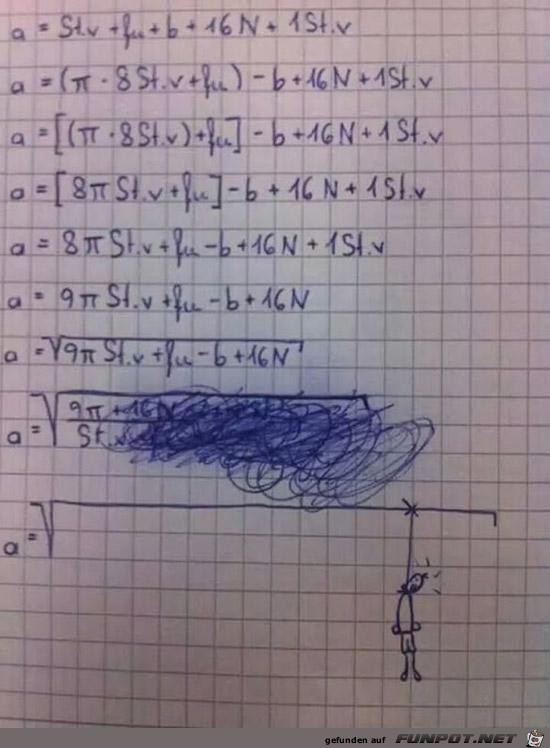 a = St.v + fu + b + 16N + 1St.v
a = (π · 8St.v + fu) - b + 16N + 1St.v
a = [(π · 8St.v) + fu] - b + 16N + 1St.v
a = [8π St.v + fu] - b + 16N + 1St.v
a = 8π St.v + fu - b + 16N + 1St.v
a = 9π St.v + fu - b + 16N
a = √9π St.v + fu - b + 16N
a = √9π + 16N
St.v
a = √
gefunden auf FUNPOT.NET